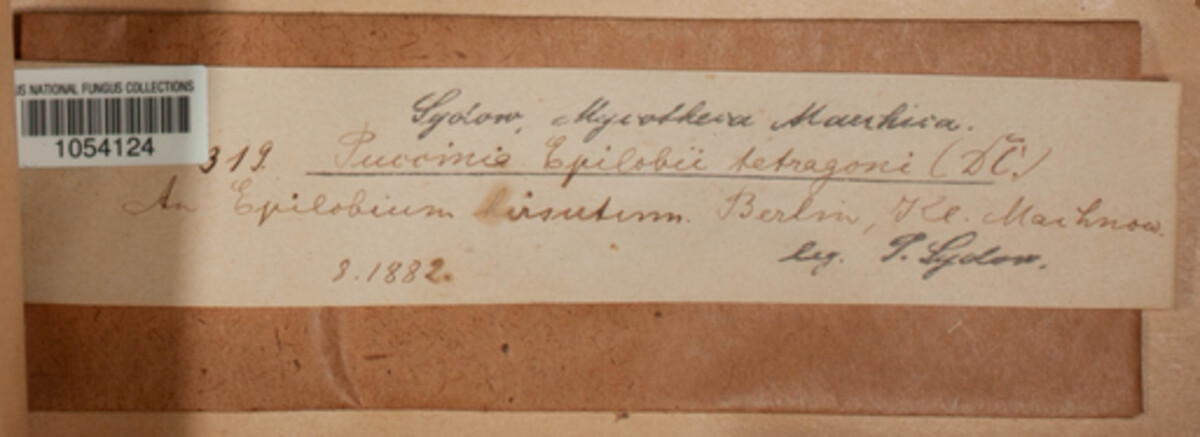 US NATIONAL FUNGUS COLLECTIONS
1054124
Sydow, Mycotheca Marchica.
319. Puccinia Epilobii tetragoni (DC.)
An Epilobium hirsutum. Berlin, Kl. Machnow.
leg. P. Sydow.
8.1882.